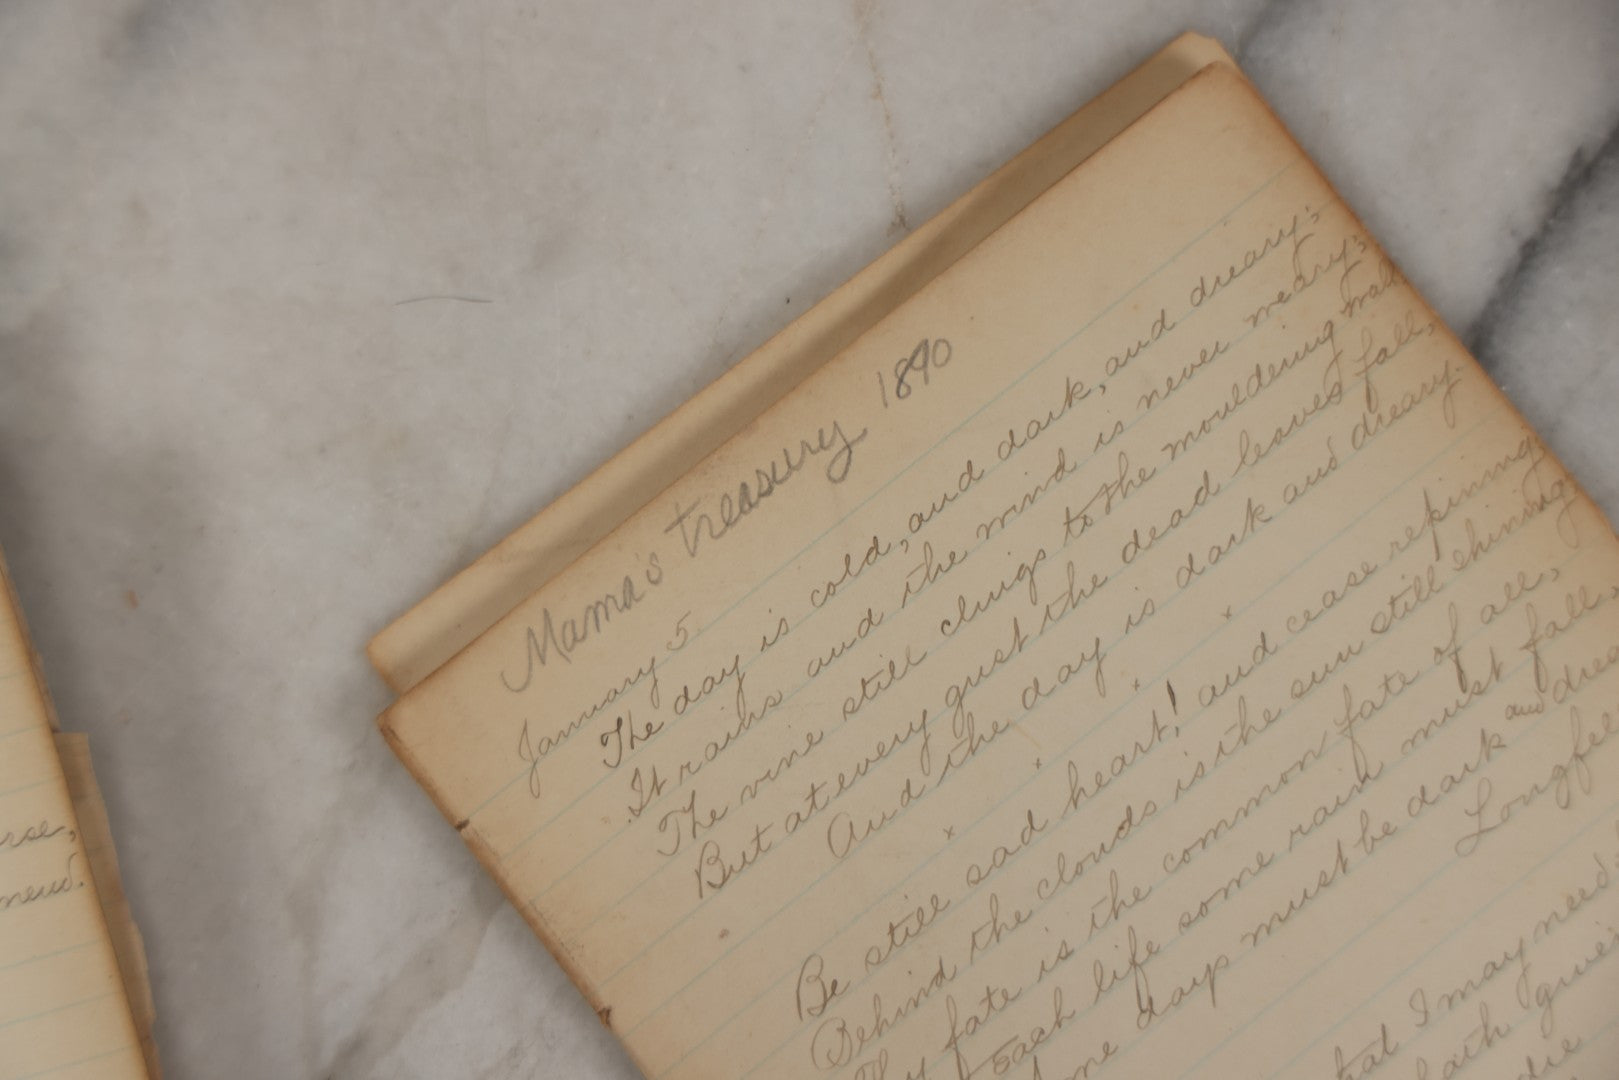 Mama's treasury 1890
January 5.
The day is cold, and dark, and dreary;
It rains and the wind is never weary;
The vine still clings to the mouldering wall
But at every gust the dead leaves fall,
And the day is dark and dreary.
x x x x
Be still sad heart! and cease repining;
Behind the clouds is the sun still shining;
Thy fate is the common fate of all,
each life some rain must fall,
days must be dark and drea
Longfel
hat I may need.